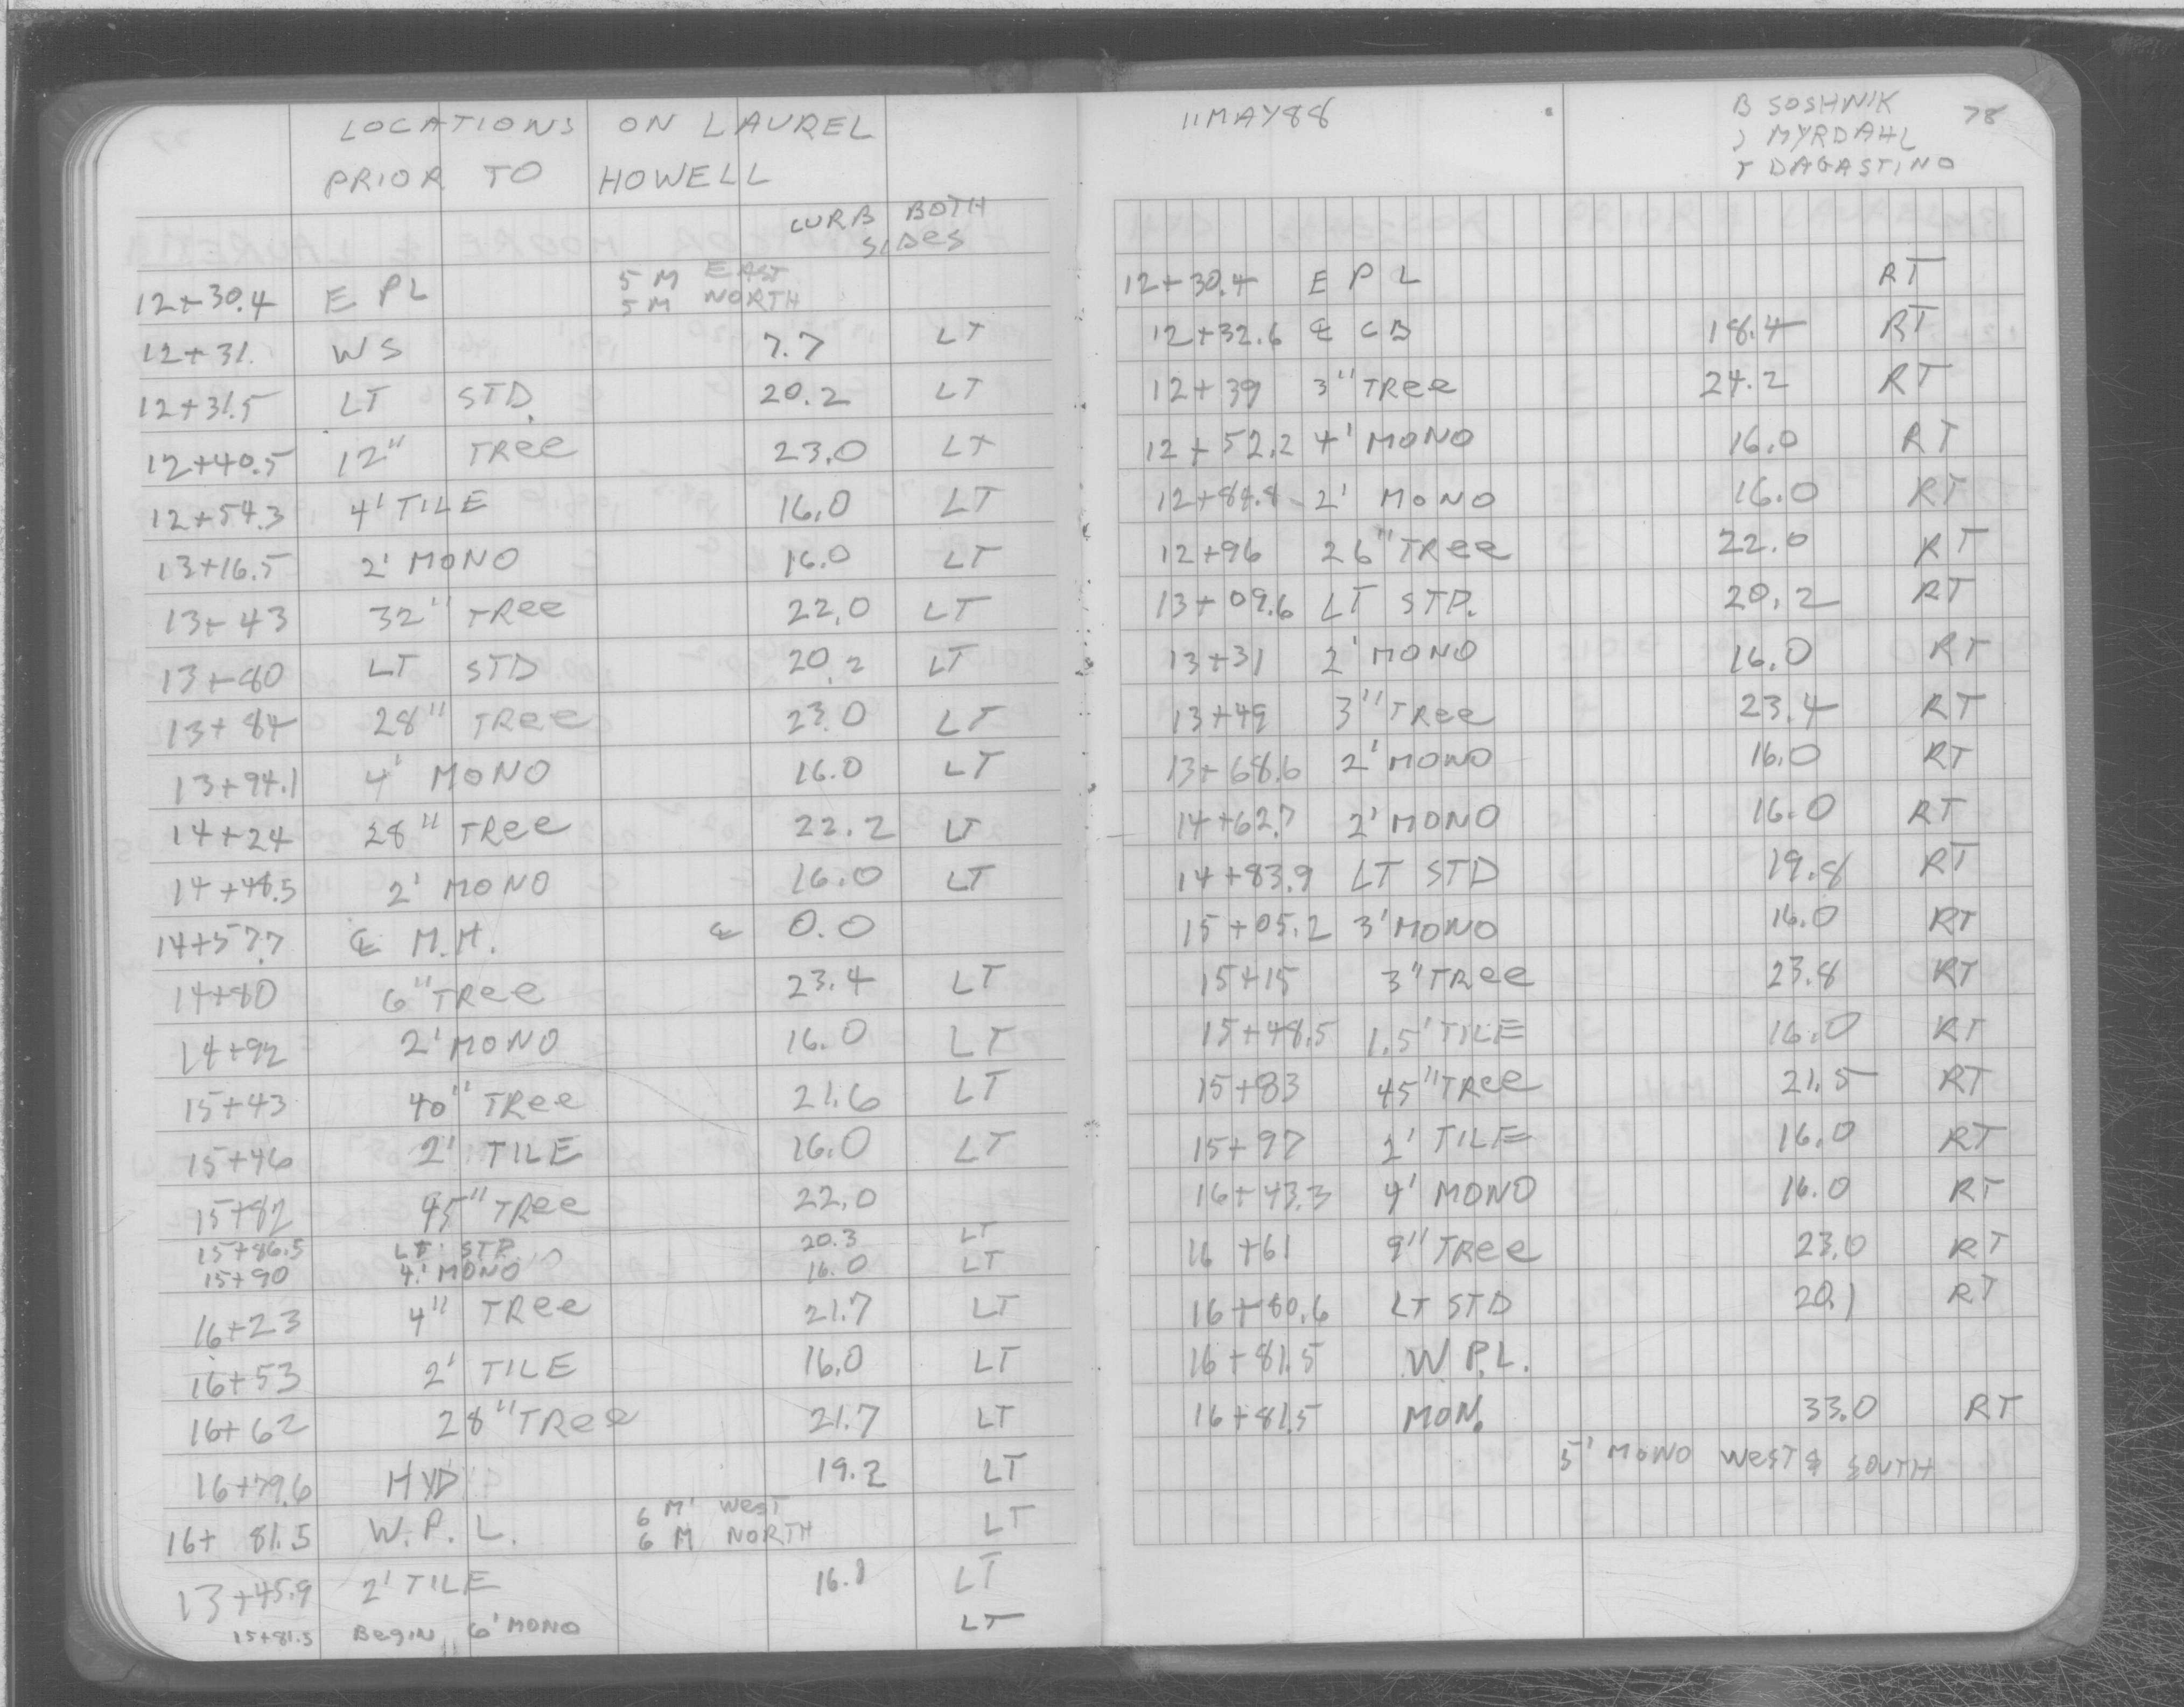 LOCATIONS ON LAUREL
PRIOR TO HOWELL
CURB BOTH
SIDES
12+30.4 E PL 5 M EAST
5 M NORTH
12+31. WS 7.7 LT
12+31.5 LT STD. 20.2 LT
12+40.5 12" TREE 23.0 LT
12+54.3 4' TILE 16.0 LT
13+16.5 2' MONO 16.0 LT
13+43 32" TREE 22.0 LT
13+80 LT STD 20.2 LT
13+84 28" TREE 23.0 LT
13+94.1 4' MONO 16.0 LT
14+24 28" TREE 22.2 LT
14+48.5 2' MONO 16.0 LT
14+57.7 ℄ M.H. ℄ 0.0
14+80 6" TREE 23.4 LT
14+92 2' MONO 16.0 LT
15+43 40" TREE 21.6 LT
15+46 2' TILE 16.0 LT
15+82 45" TREE 22.0
15+86.5 LT STD. 20.3 LT
15+90 4' MONO 16.0 LT
16+23 4" TREE 21.7 LT
16+53 2' TILE 16.0 LT
16+62 28" TREE 21.7 LT
16+79.6 HYD 19.2 LT
16+81.5 W.P.L. 6 M' WEST LT
6 M NORTH
13+45.9 2' TILE 16.0 LT
15+81.3 BEGIN 6' MONO LT
11MAY88
B SOSHNIK 78
J MYRDAHL
T DAGASTINO
12+30.4 E P L RT
12+32.6 ℄ CB 18.4 RT
12+39 3" TREE 24.2 RT
12+52.2 4' MONO 16.0 RT
12+84.8 2' MONO 16.0 RT
12+96 26" TREE 22.0 RT
13+09.6 LT STD. 20.2 RT
13+31 2' MONO 16.0 RT
13+49 3" TREE 23.4 RT
13+68.6 2' MONO 16.0 RT
14+62.7 2' MONO 16.0 RT
14+83.9 LT STD 19.8 RT
15+05.2 3' MONO 16.0 RT
15+15 3" TREE 23.8 RT
15+48.5 1.5' TILE 16.0 RT
15+83 45" TREE 21.5 RT
15+97 2' TILE 16.0 RT
16+43.3 4' MONO 16.0 RT
16+61 9" TREE 23.0 RT
16+80.6 LT STD 20.1 RT
16+81.5 W.P.L.
16+81.5 MON. 33.0 RT
5' MONO WEST & SOUTH